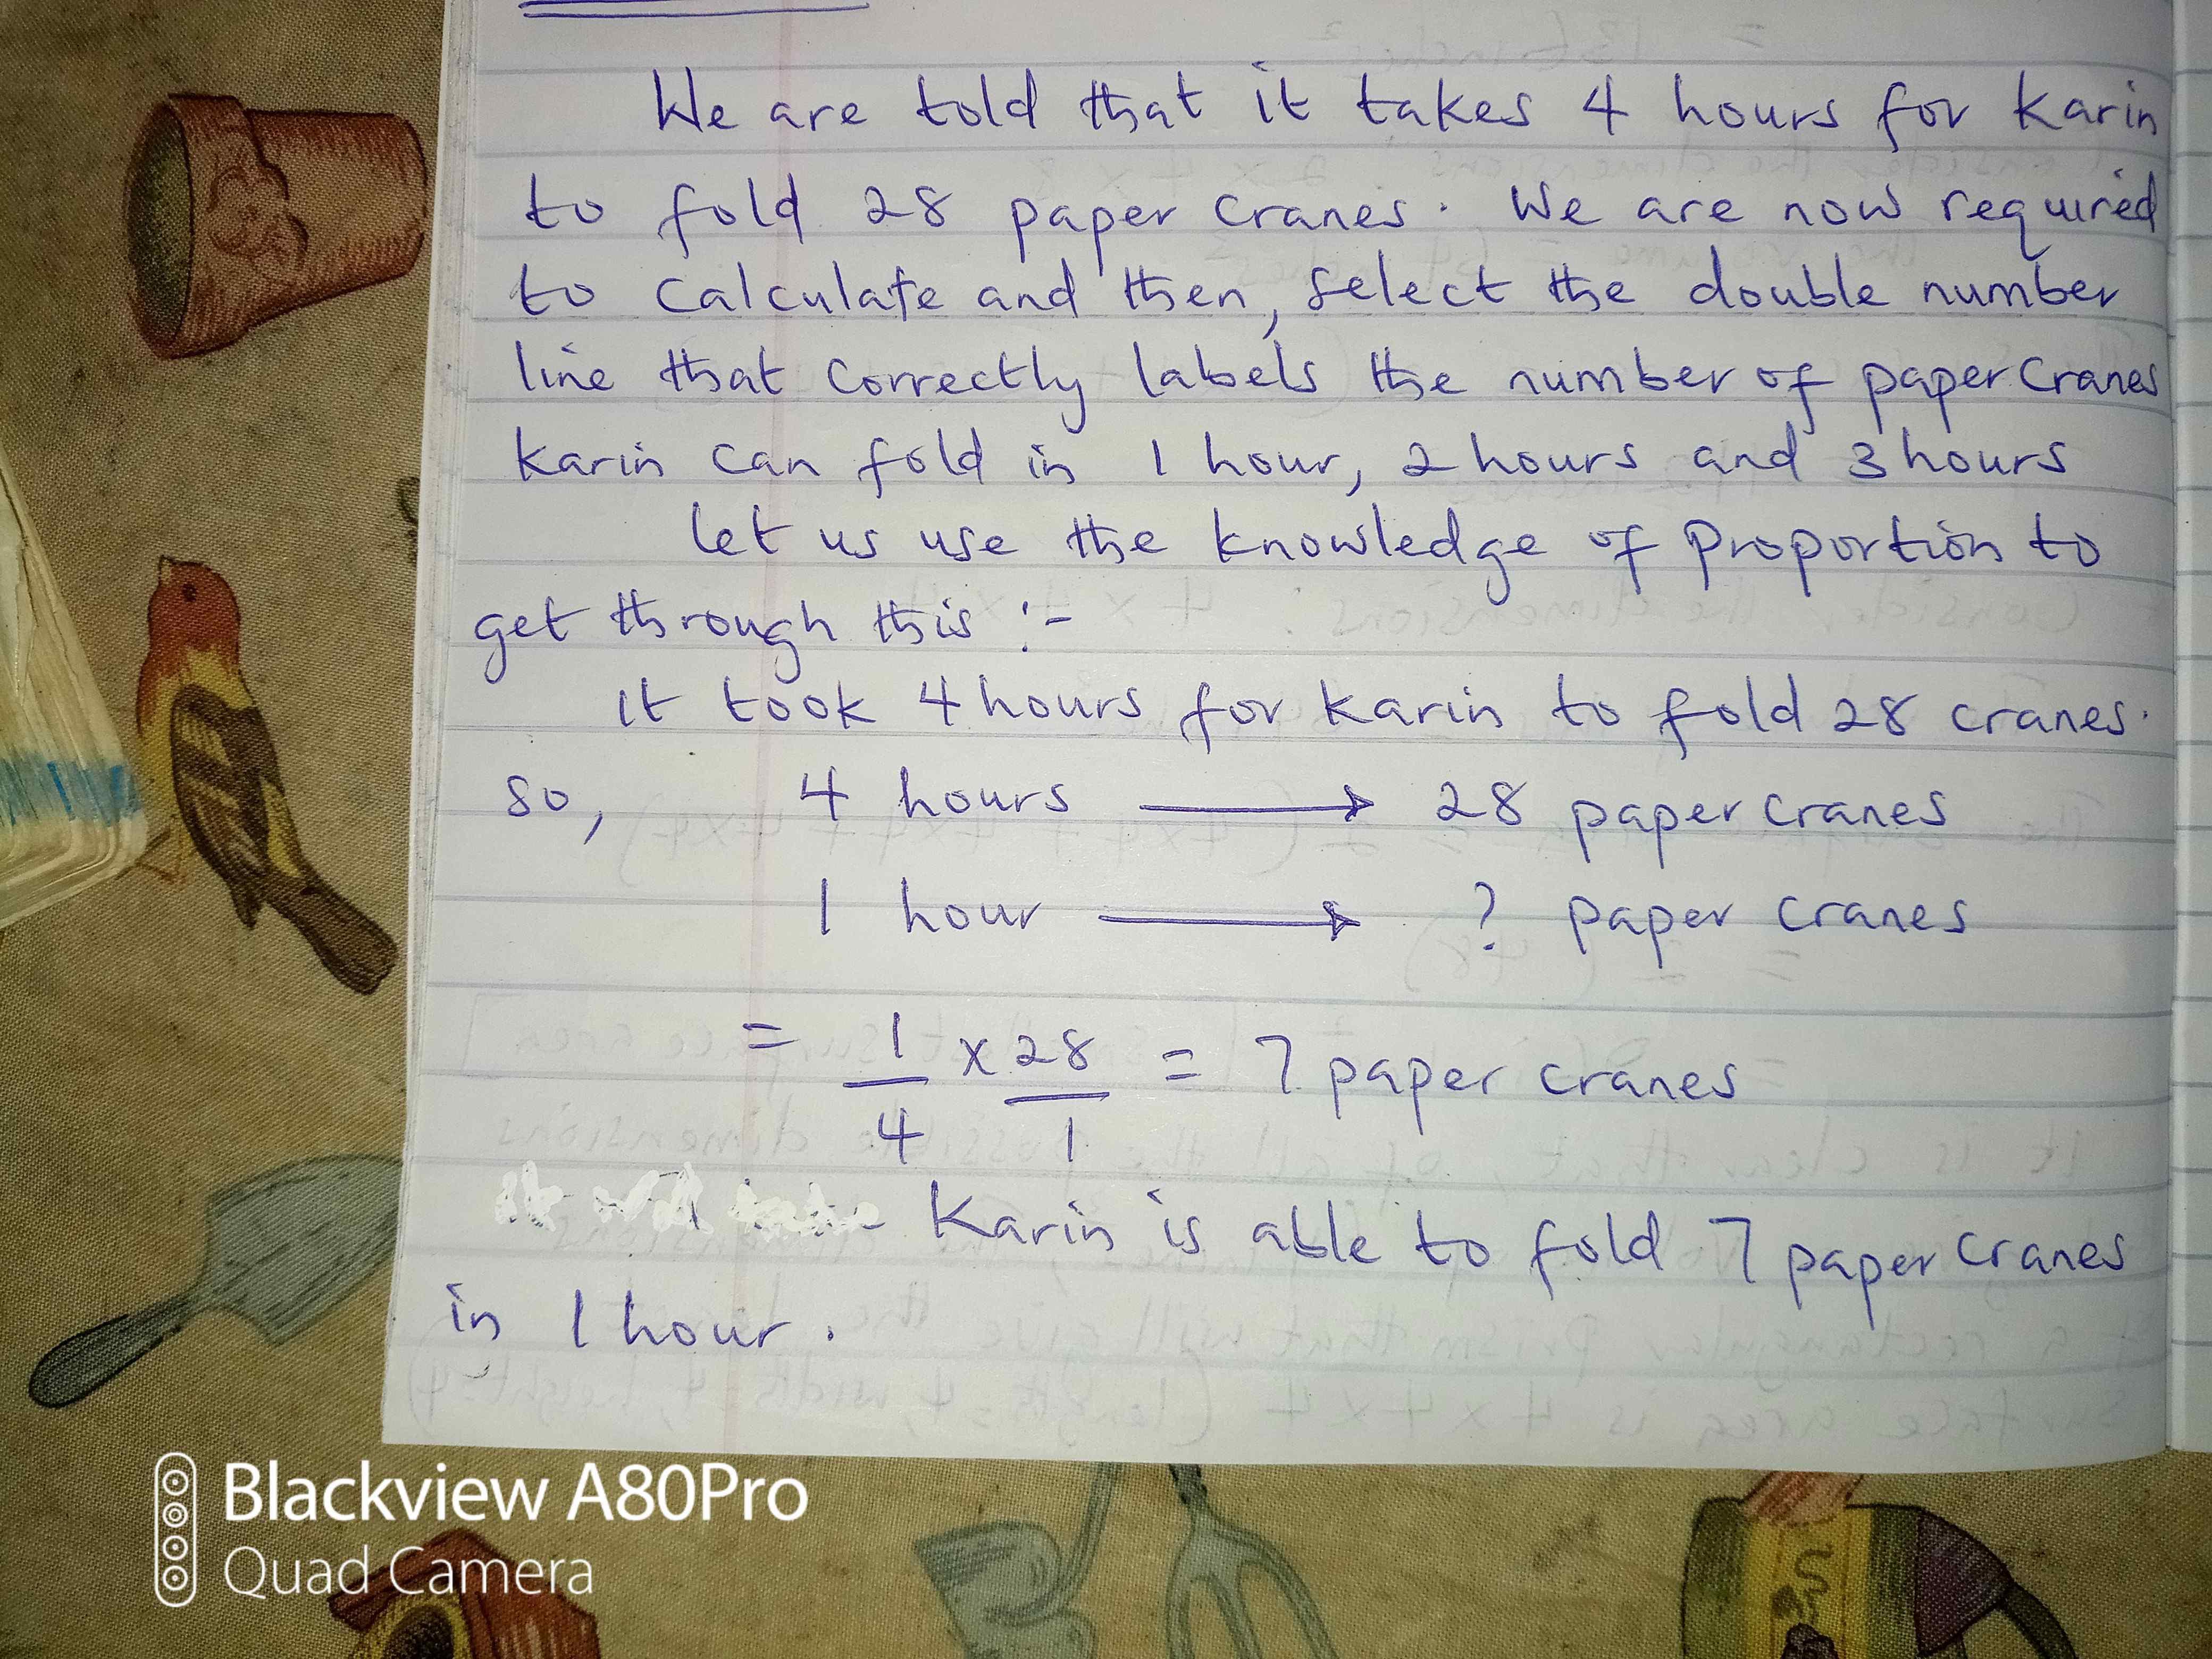 We are told that it takes 4 hours for Karin
to fold 28 paper cranes. We are now required
to calculate and then, select the double number
line that correctly labels the number of paper cranes
Karin can fold in 1 hour, 2 hours and 3 hours
let us use the knowledge of proportion to
get through this :-
it took 4 hours for Karin to fold 28 cranes.
so, 4 hours → 28 paper cranes
1 hour → ? paper cranes
= 1/4 x 28/1 = 7 paper cranes
Karin is able to fold 7 paper cranes
in 1 hour.
Blackview A80Pro
Quad Camera